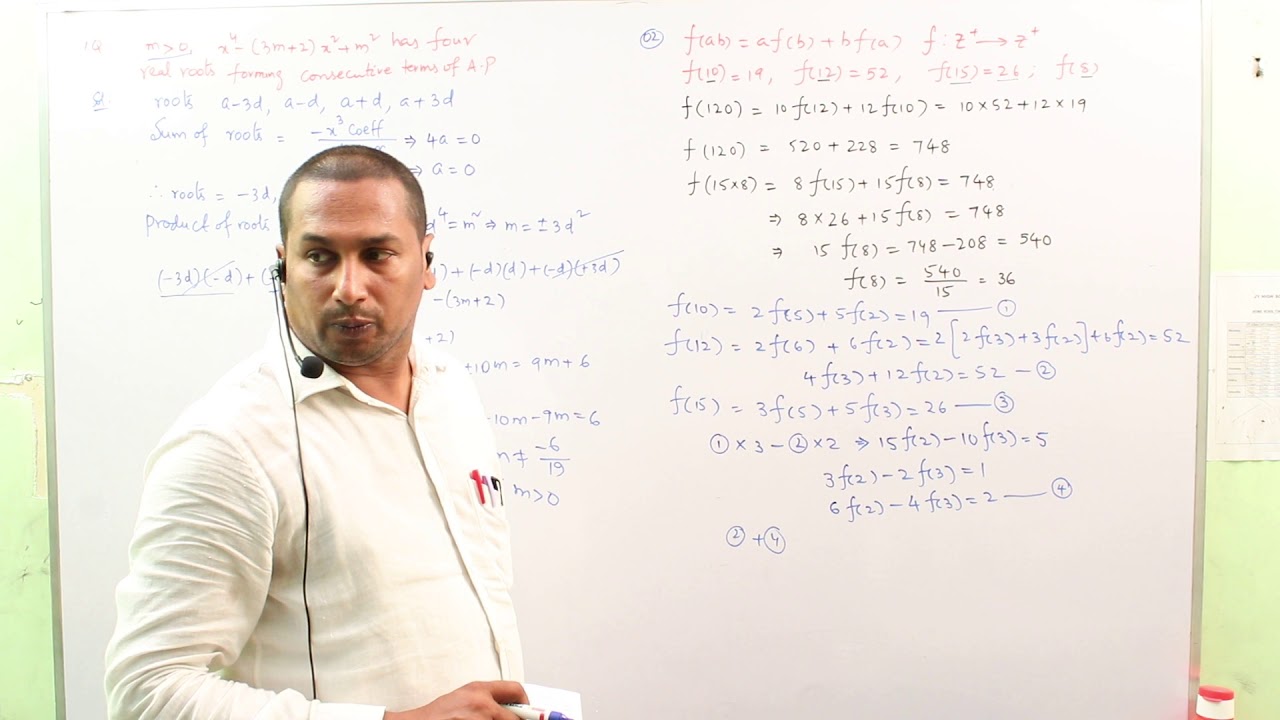 1Q m>0, x⁴-(3m+2)x²+m² has four
real roots forming consecutive terms of A.P
Sl. roots a-3d, a-d, a+d, a+3d
Sum of roots = -x³ coeff ⇒ 4a=0
⇒ a=0
∴ roots = -3d,
Product of roots d⁴=m² ⇒ m=±3d²
(-3d)(-d)+( )+(-d)(d)+(-d)(+3d)
-(3m+2)
+2)
+10m=9m+6
-10m-9m=6
≠ -6/19
m>0
02 f(ab)=af(b)+bf(a) f:z⁺→z⁺
f(10)=19, f(12)=52, f(15)=26; f(8)
f(120) = 10f(12)+12f(10) = 10×52+12×19
f(120) = 520+228 = 748
f(15×8) = 8f(15)+15f(8) = 748
⇒ 8×26+15f(8) = 748
⇒ 15 f(8) = 748-208 = 540
f(8) = 540/15 = 36
f(10) = 2f(5)+5f(2)=19 — ①
f(12) = 2f(6)+6f(2)=2[2f(3)+3f(2)]+6f(2)=52
4f(3)+12f(2)=52 — ②
f(15) = 3f(5)+5f(3)=26 — ③
①×3-②×2 ⇒ 15f(2)-10f(3)=5
3f(2)-2f(3)=1
6f(2)-4f(3)=2 — ④
②+④